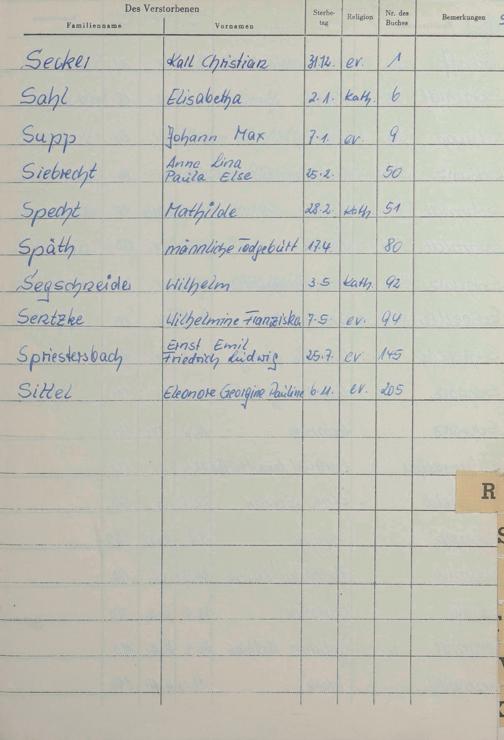 Des Verstorbenen
Familienname Vornamen Sterbe-tag Religion Nr. des Buches Bemerkungen
Secker Karl Christian 31.12. ev. 1
Sahl Elisabetha 2.1. kath. 6
Supp Johann Max 7.1. ev 9
Siebrecht Anne Lina Paula Else 25.2. 50
Specht Mathilde 28.2. kath. 51
Späth männliche Todgebürt 17.4. 80
Segschneider Wilhelm 3.5 kath. 92
Sentzke Wilhelmine Franziska 7.5. ev. 94
Spriestersbach Ernst Emil Friedrich Ludwig 25.7. ev 145
Sittel Eleonore Georgine Pauline 6.11. ev. 205
R